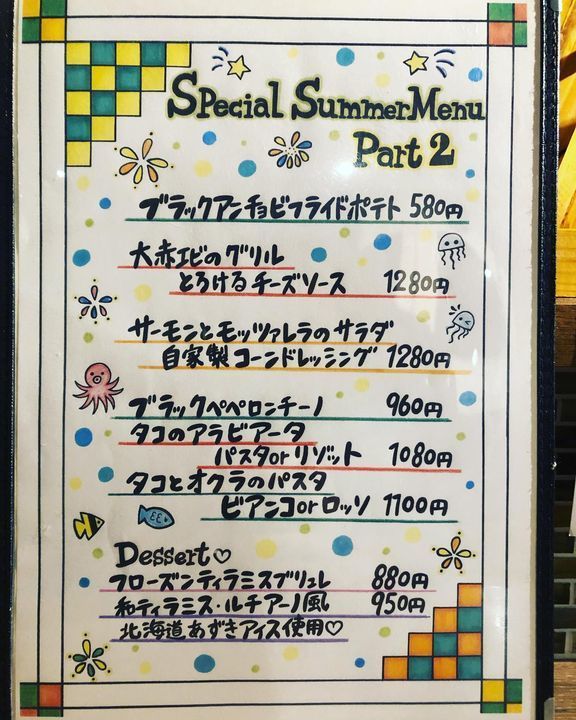 Special Summer Menu
Part 2
ブラックアンチョビフライドポテト 580円
大赤エビのグリル
とろけるチーズソース 1280円
サーモンとモッツァレラのサラダ
自家製コーンドレッシング 1280円
ブラックペペロンチーノ 960円
タコのアラビアータ
パスタorリゾット 1080円
タコとオクラのパスタ
ビアンコorロッソ 1100円
Dessert♡
フローズンティラミスブリュレ 880円
和ティラミス・ルチアーノ風 950円
北海道あずきアイス使用♡